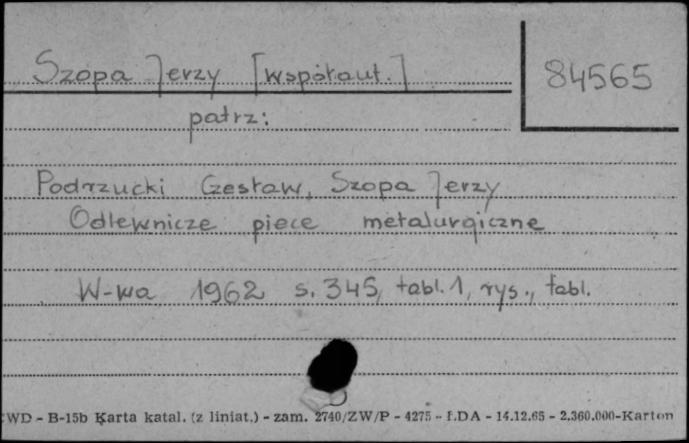 Szopa Jerzy [współaut.]
84565
patrz:
Podrzucki Czesław, Szopa Jerzy
Odlewnicze piece metalurgiczne
W-wa 1962 s. 345, tabl. 1, rys., tabl.
WD - B-15b Karta katal. (z liniat.) - zam. 2740/ZW/P - 4275 - f.DA - 14.12.65 - 2.360.000-Karton